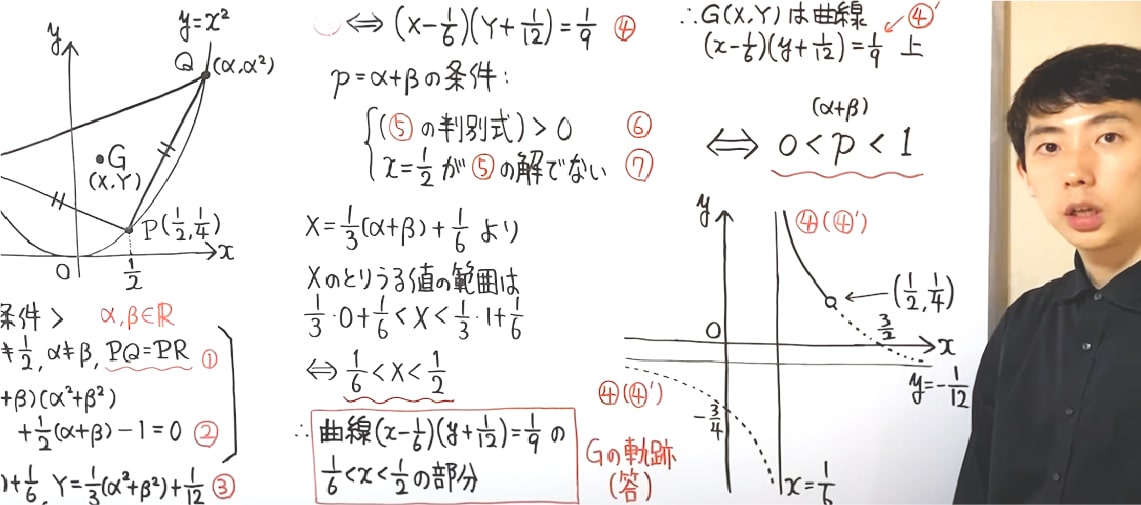 y=x²
y
Q
(α,α²)
G
(X,Y)
P(1/2,1/4)
O
1/2
x
条件> α,β∈ℝ
≠1/2, α≠β, PQ=PR ①
+β)(α²+β²)
+1/2(α+β)-1=0 ②
)+1/6, Y=1/3(α²+β²)+1/12 ③
⇔ (X-1/6)(Y+1/12)=1/9 ④
p=α+βの条件:
(⑤の判別式)>0 ⑥
x=1/2が⑤の解でない ⑦
X=1/3(α+β)+1/6より
Xのとりうる値の範囲は
1/3・0+1/6<X<1/3・1+1/6
⇔ 1/6<X<1/2
∴ 曲線(x-1/6)(y+1/12)=1/9の
1/6<x<1/2の部分
Gの軌跡
(答)
∴G(X,Y)は曲線 ④'
(x-1/6)(y+1/12)=1/9上
(α+β)
⇔ 0<p<1
y
④(④')
(1/2,1/4)
O
3/2
x
y=-1/12
④(④')
-3/4
x=1/6